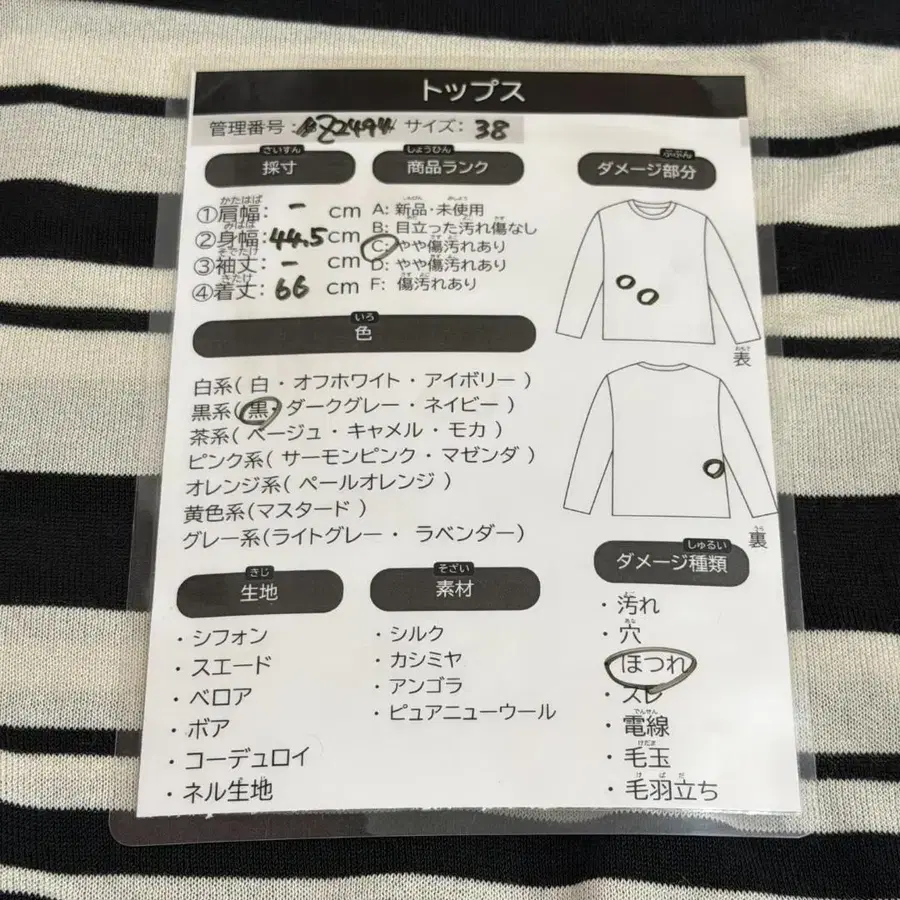 トップス
管理番号: Z2494 サイズ: 38
さいすん
採寸
かたはば
①肩幅: - cm
みはば
②身幅: 44.5 cm
そでたけ
③袖丈: - cm
きたけ
④着丈: 66 cm
しょうひん
商品ランク
A: 新品・未使用
B: 目立った汚れ傷なし
C: やや傷汚れあり
D: やや傷汚れあり
F: 傷汚れあり
いろ
色
白系( 白・オフホワイト・アイボリー )
黒系( 黒・ダークグレー・ネイビー )
茶系( ベージュ・キャメル・モカ )
ピンク系( サーモンピンク・マゼンダ )
オレンジ系( ペールオレンジ )
黄色系(マスタード )
グレー系(ライトグレー・ ラベンダー)
きじ
生地
・シフォン
・スエード
・ベロア
・ボア
・コーデュロイ
・ネル生地
そざい
素材
・シルク
・カシミヤ
・アンゴラ
・ピュアニューウール
ぶぶん
ダメージ部分
おもて
表
うら
裏
しゅるい
ダメージ種類
・汚れ
あな
・穴
ほつれ
・スレ
でんせん
・電線
けだま
・毛玉
けばだ
・毛羽立ち